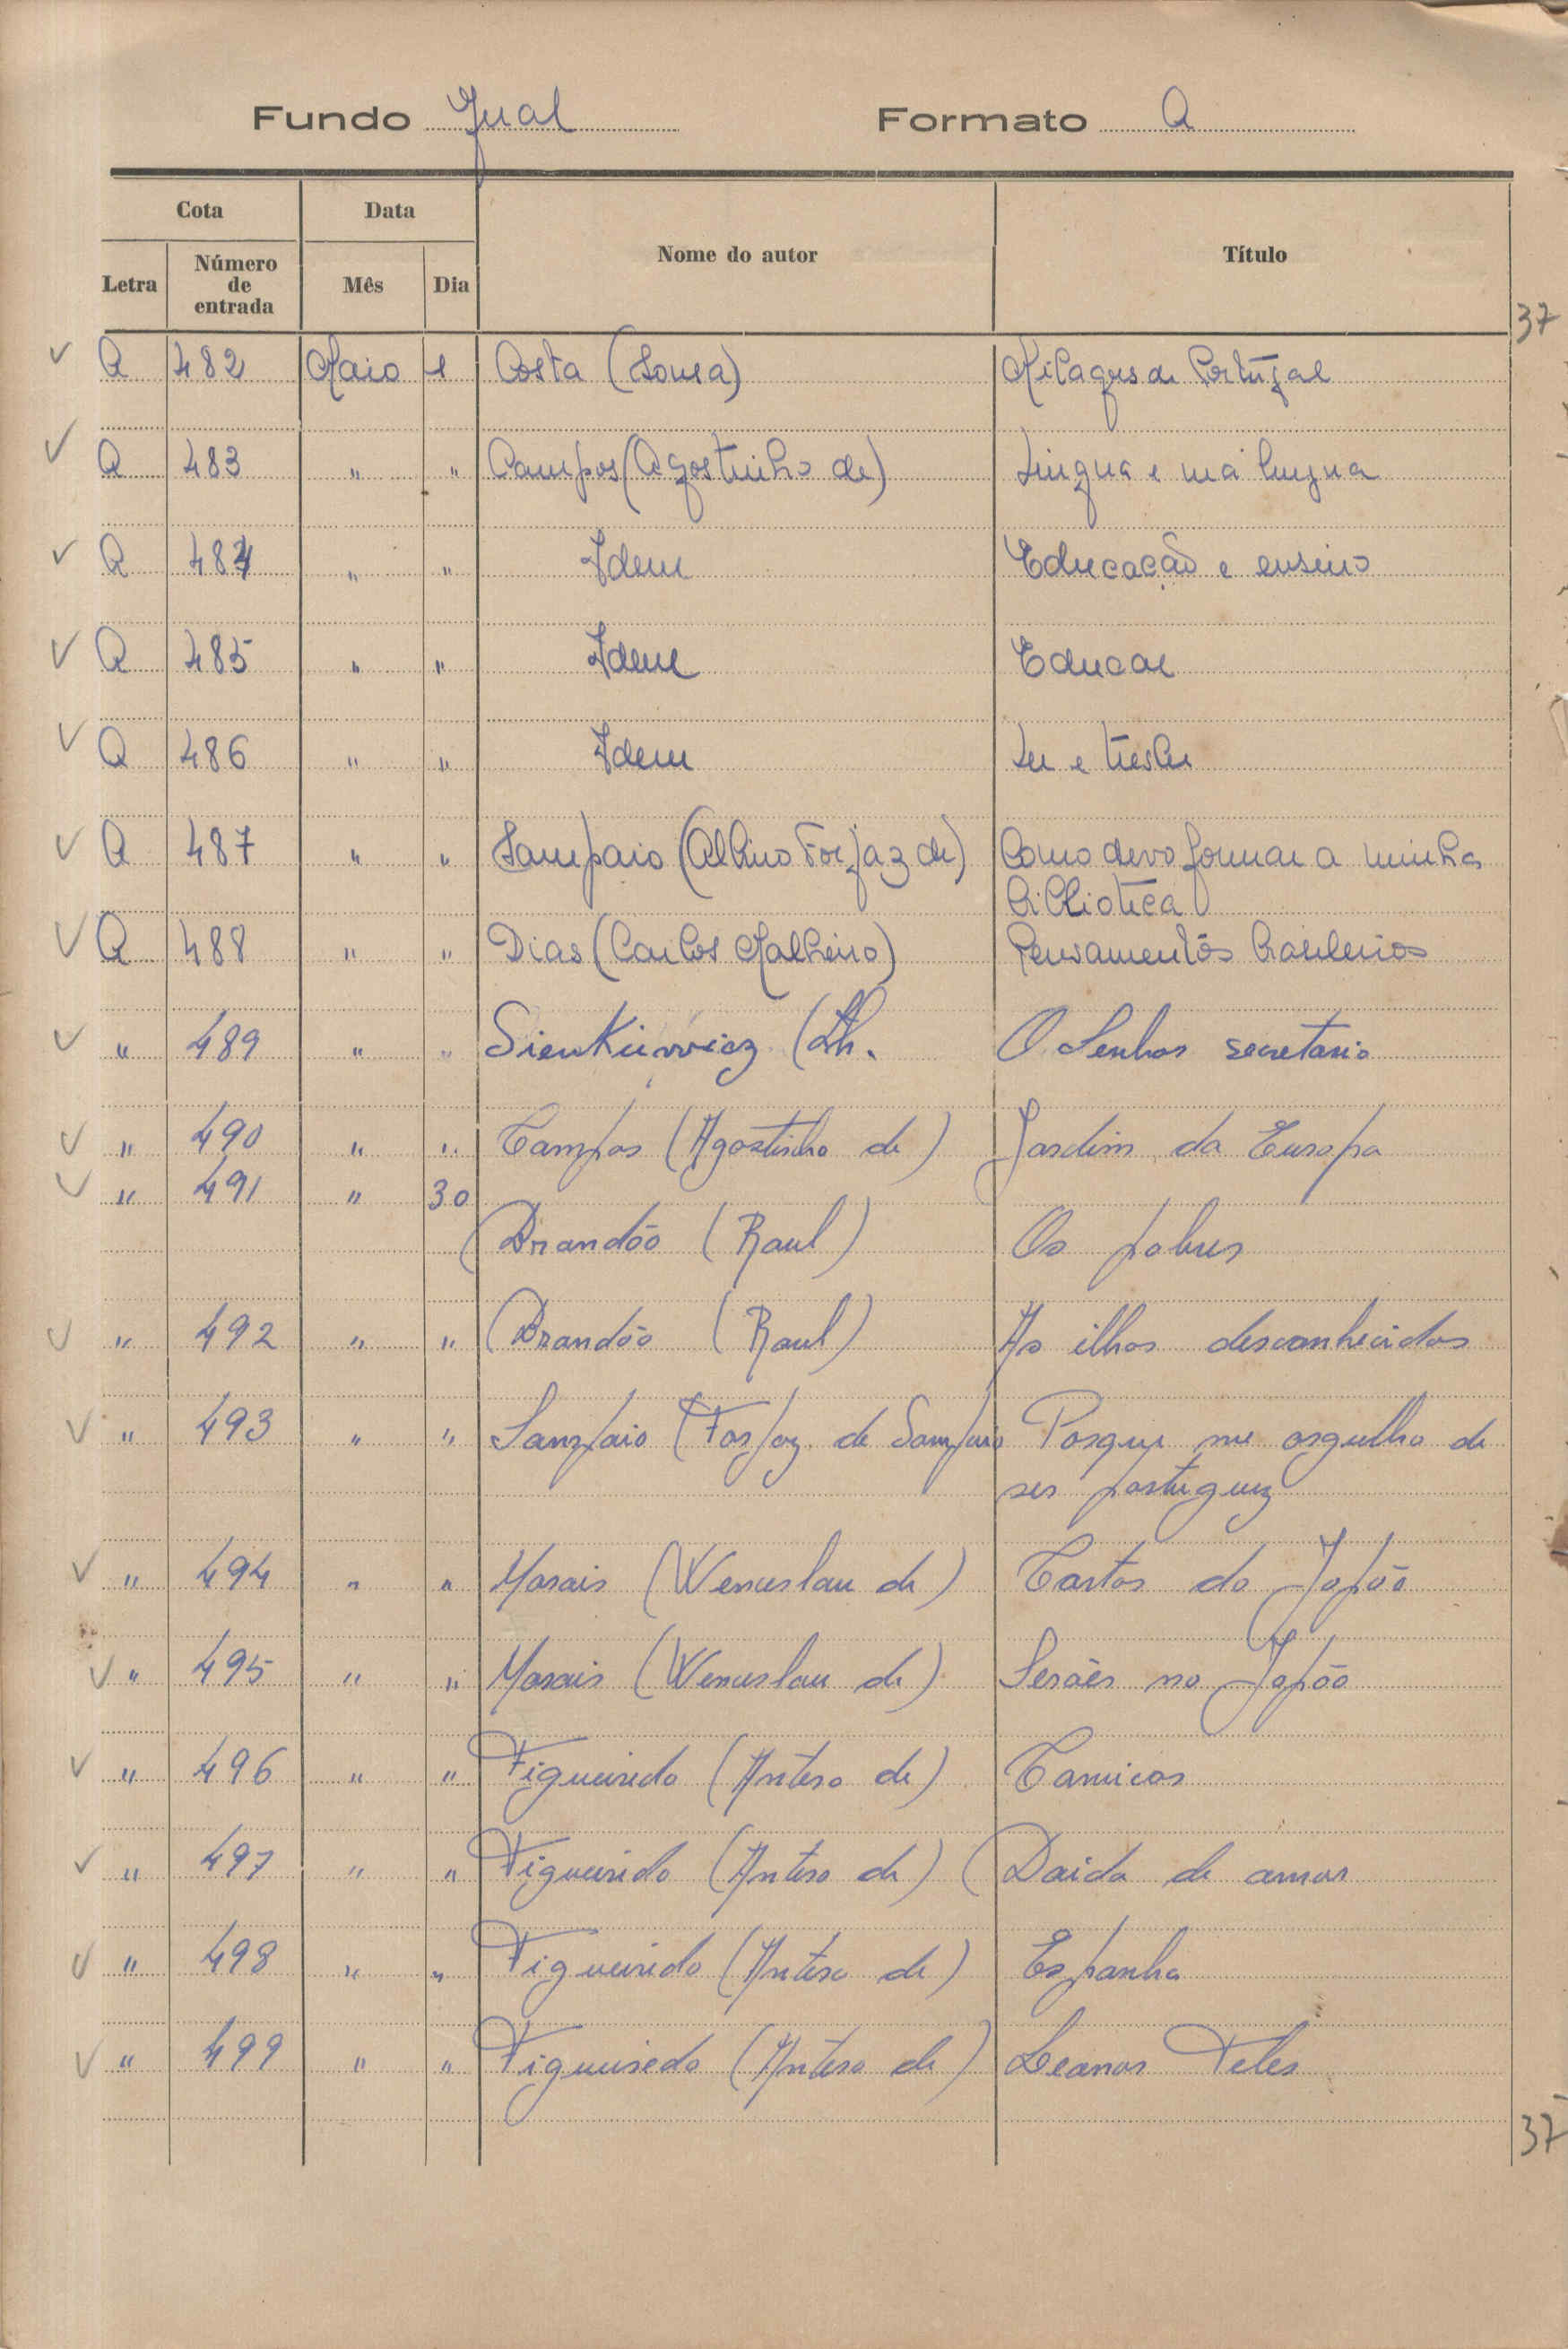 Fundo Geral Formato A
Cota Data Nome do autor Título
Letra Número de entrada Mês Dia
37
A 482 Maio 1 Costa (Sousa) Milagres de Portugal
A 483 " " Campos (Agostinho de) Língua e má lingua
A 484 " " Idem Educação e ensino
A 485 " " Idem Educar
A 486 " " Idem Ler e tresler
A 487 " " Sampaio (Albino Forjaz de) Como devo formar a minha
biblioteca
A 488 " " Dias (Carlos Malheiro) Pensamentos brasileiros
" 489 " " Sienkiewicz ( O Senhor secretario
" 490 " " Campos (Agostinho de) Jardim da Europa
" 491 " 30
Brandão (Raul) Os pobres
" 492 " " Brandão (Raul) As ilhas desconhecidas
" 493 " " Sampaio (Forjaz de Sampaio Porque me orgulho de
ser portuguez
" 494 " " Morais (Wenceslau de) Cartas do Japão
" 495 " " Morais (Wenceslau de) Serões no Japão
" 496 " " Figueiredo (Antero de)
" 497 " " Figueiredo (Antero de) Doida de amor
" 498 " " Figueiredo (Antero de) Espanha
" 499 " " Figueiredo (Antero de) Leonor Teles
37